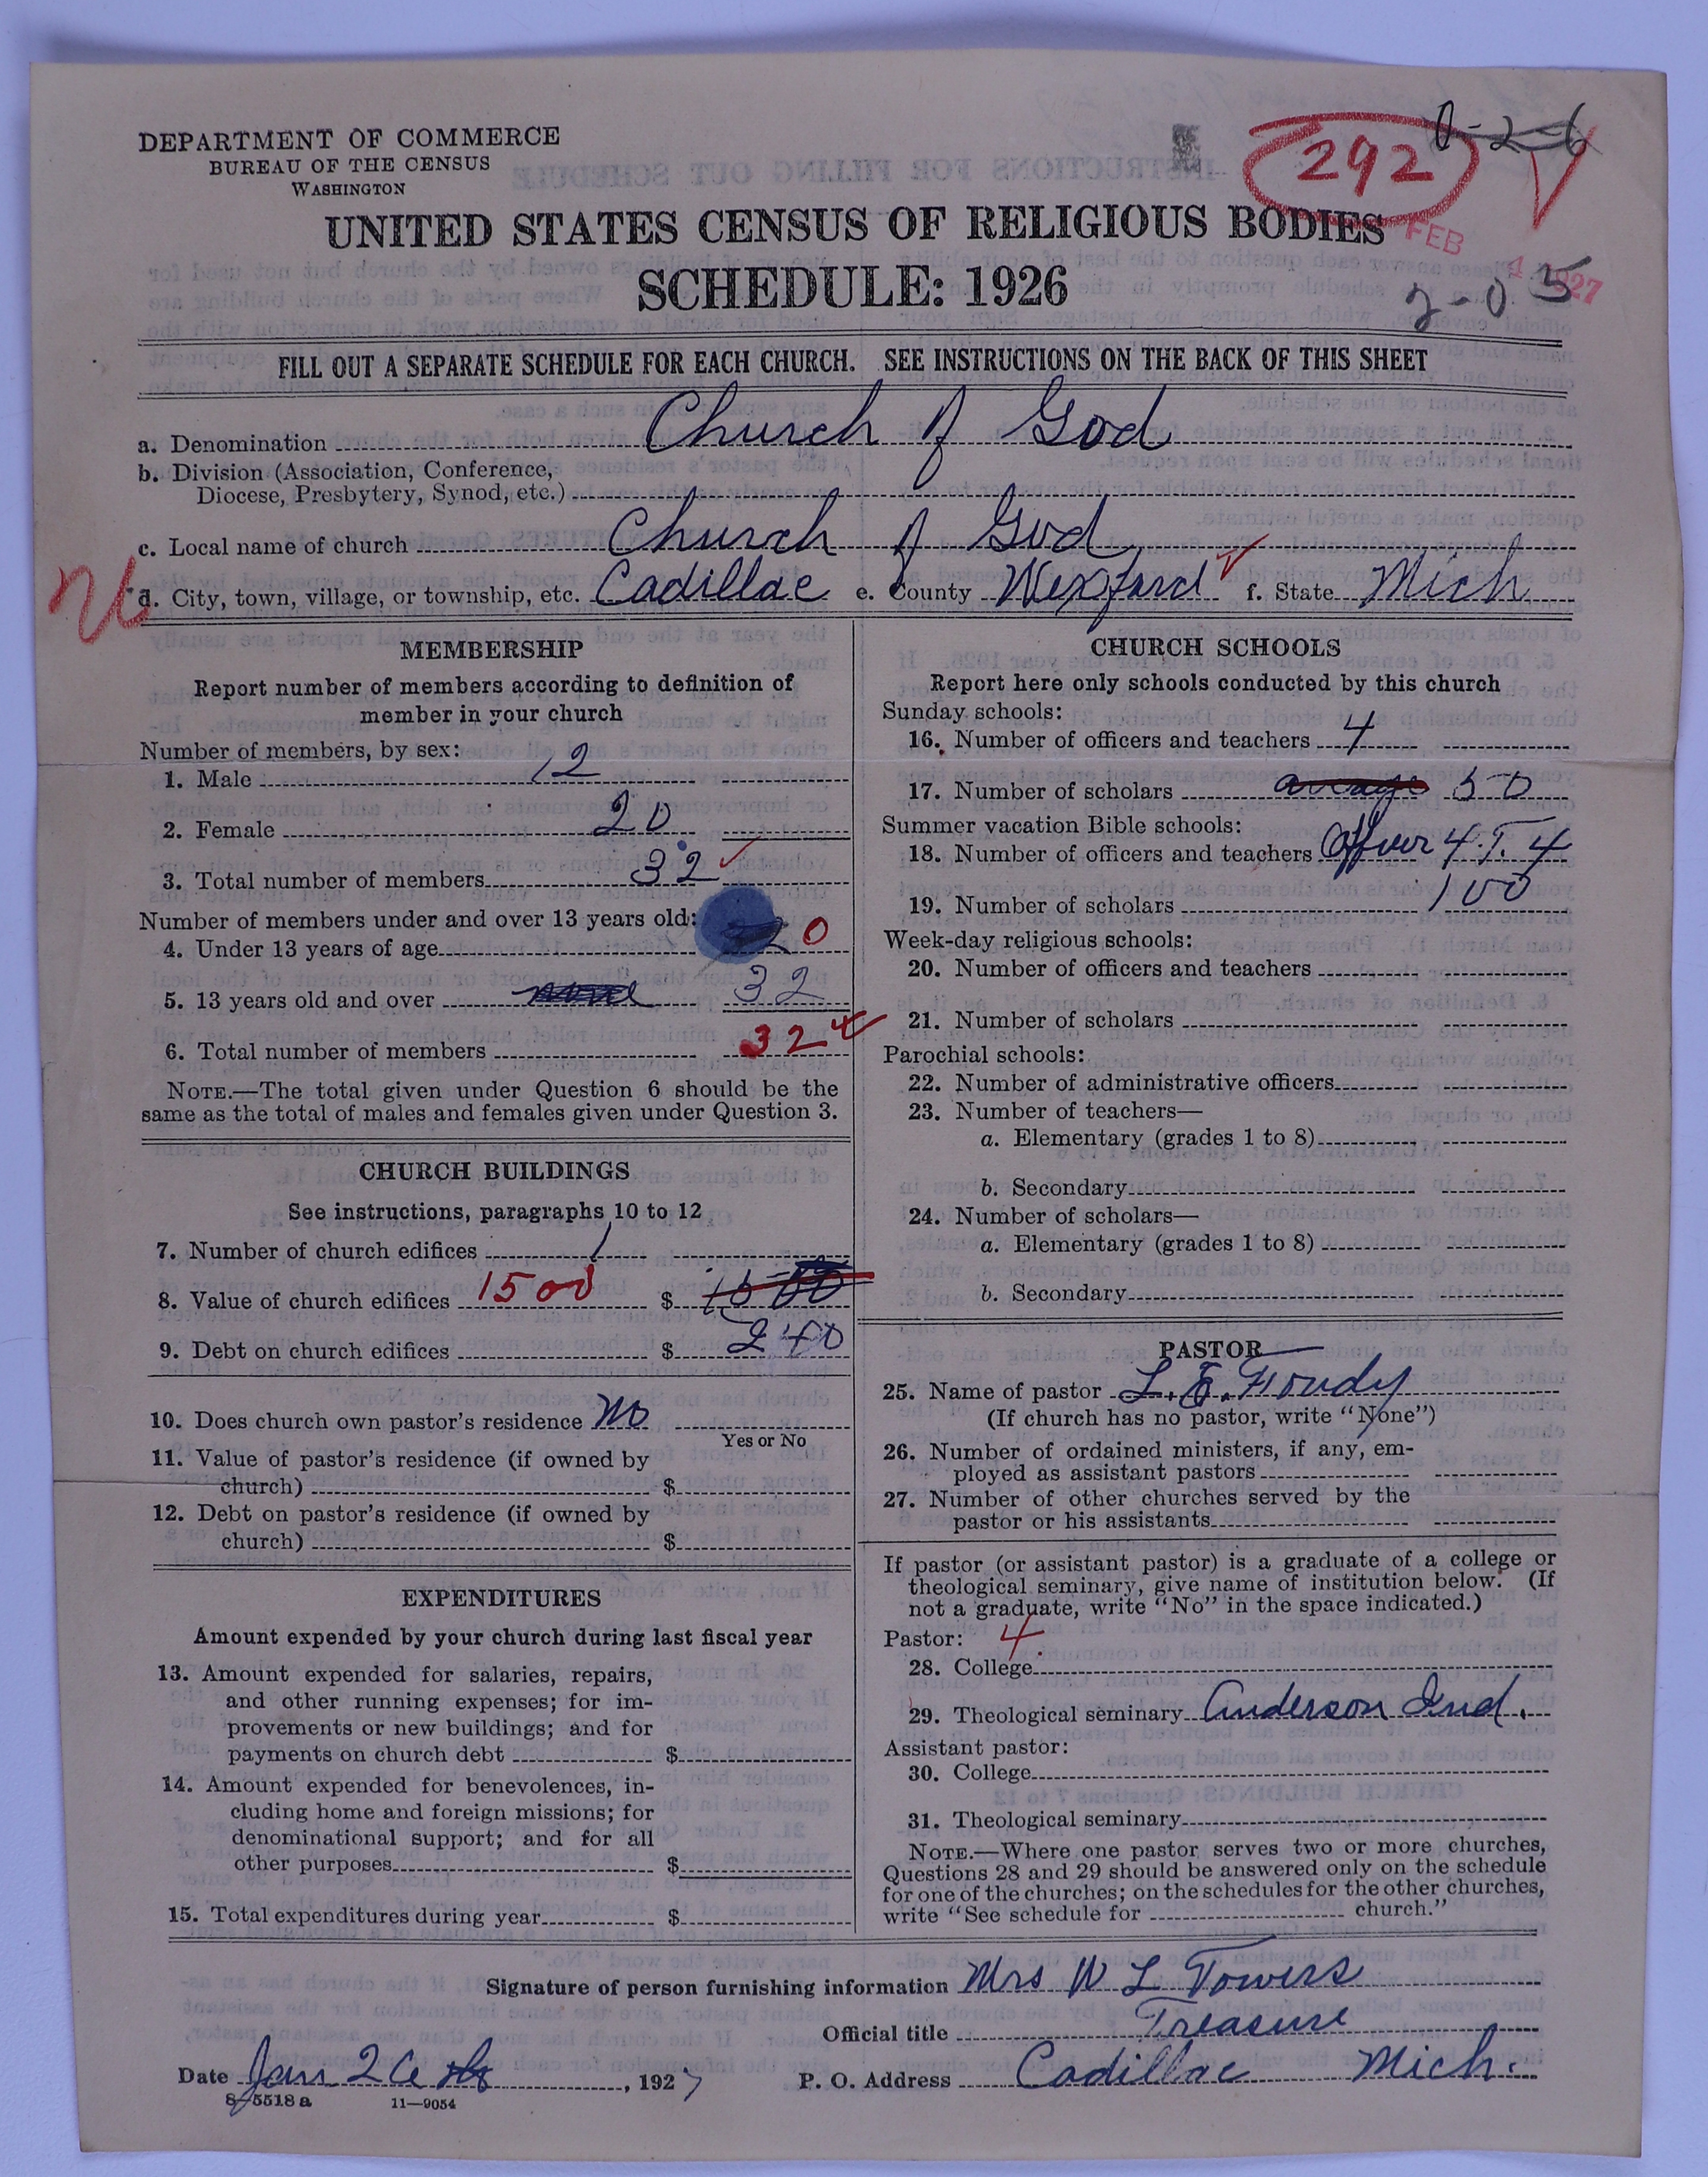 DEPARTMENT OF COMMERCE
BUREAU OF THE CENSUS
WASHINGTON
292
0-2-6
UNITED STATES CENSUS OF RELIGIOUS BODIES
FEB 1 1927
SCHEDULE: 1926
2-05
FILL OUT A SEPARATE SCHEDULE FOR EACH CHURCH. SEE INSTRUCTIONS ON THE BACK OF THIS SHEET
a. Denomination Church of God
b. Division (Association, Conference,
Diocese, Presbytery, Synod, etc.)
c. Local name of church Church of God
d. City, town, village, or township, etc. Cadillac e. County Wexford f. State Mich
MEMBERSHIP
Report number of members according to definition of
member in your church
Number of members, by sex:
1. Male 12
2. Female 20
3. Total number of members 32
Number of members under and over 13 years old:
4. Under 13 years of age 0
5. 13 years old and over none 32
6. Total number of members 32
NOTE.—The total given under Question 6 should be the
same as the total of males and females given under Question 3.
CHURCH BUILDINGS
See instructions, paragraphs 10 to 12
7. Number of church edifices 1
8. Value of church edifices 1500 $ 1500
9. Debt on church edifices $ 240
10. Does church own pastor's residence No
Yes or No
11. Value of pastor's residence (if owned by
church) $
12. Debt on pastor's residence (if owned by
church) $
EXPENDITURES
Amount expended by your church during last fiscal year
13. Amount expended for salaries, repairs,
and other running expenses; for im-
provements or new buildings; and for
payments on church debt $
14. Amount expended for benevolences, in-
cluding home and foreign missions; for
denominational support; and for all
other purposes $
15. Total expenditures during year $
CHURCH SCHOOLS
Report here only schools conducted by this church
Sunday schools:
16. Number of officers and teachers 4
17. Number of scholars average 50
Summer vacation Bible schools:
18. Number of officers and teachers Officer 4 T. 4
19. Number of scholars 100
Week-day religious schools:
20. Number of officers and teachers
21. Number of scholars
Parochial schools:
22. Number of administrative officers
23. Number of teachers—
a. Elementary (grades 1 to 8)
b. Secondary
24. Number of scholars—
a. Elementary (grades 1 to 8)
b. Secondary
PASTOR
25. Name of pastor L. E.
(If church has no pastor, write "None")
26. Number of ordained ministers, if any, em-
ployed as assistant pastors
27. Number of other churches served by the
pastor or his assistants
If pastor (or assistant pastor) is a graduate of a college or
theological seminary, give name of institution below. (If
not a graduate, write "No" in the space indicated.)
Pastor: 4
28. College
29. Theological seminary Anderson Ind.
Assistant pastor:
30. College
31. Theological seminary
NOTE.—Where one pastor serves two or more churches,
Questions 28 and 29 should be answered only on the schedule
for one of the churches; on the schedules for the other churches,
write "See schedule for church."
Signature of person furnishing information Mrs W L Towers
Official title Treasure
Date Jan 26 , 1927 P. O. Address Cadillac Mich.
8-5518 a 11—9054